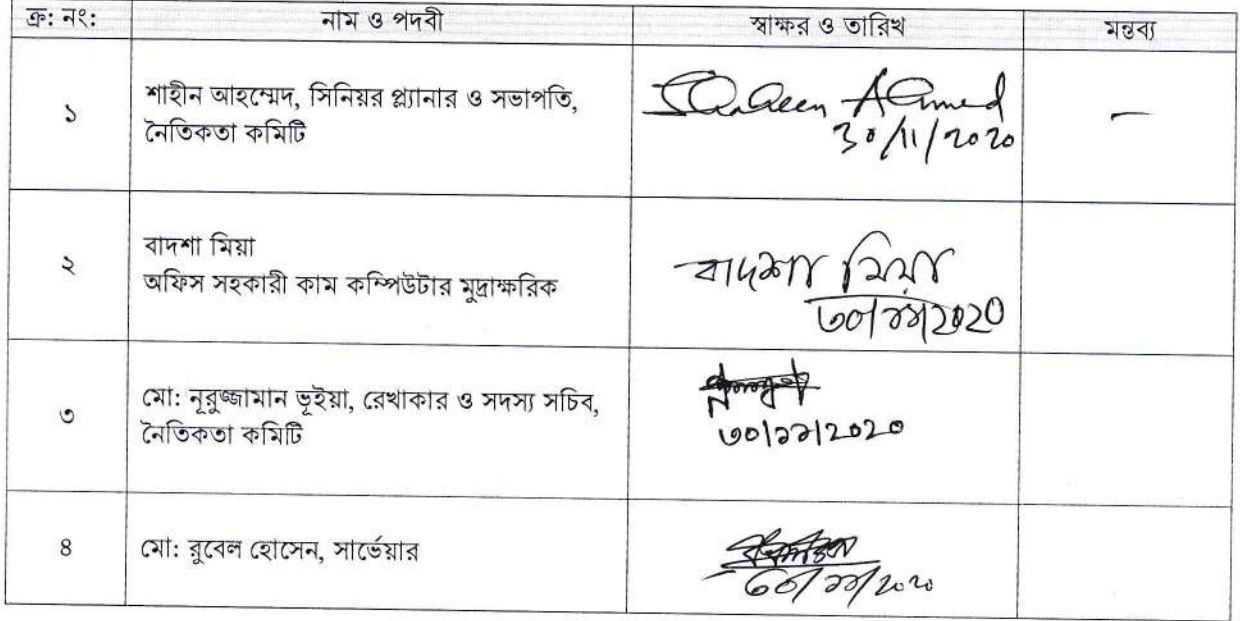 ক্র: নং: নাম ও পদবী স্বাক্ষর ও তারিখ মন্তব্য
১ শাহীন আহম্মেদ, সিনিয়র প্ল্যানার ও সভাপতি, Shaheen Ahmed –
নৈতিকতা কমিটি 30/11/2020
বাদশা মিয়া
২ অফিস সহকারী কাম কম্পিউটার মুদ্রাক্ষরিক বাদশা মিয়া
৩০/১১/2020
৩ মো: নূরুজ্জামান ভূইয়া, রেখাকার ও সদস্য সচিব,
নৈতিকতা কমিটি ৩০/১১/2020
৪ মো: রুবেল হোসেন, সার্ভেয়ার
৩০/১১/2020